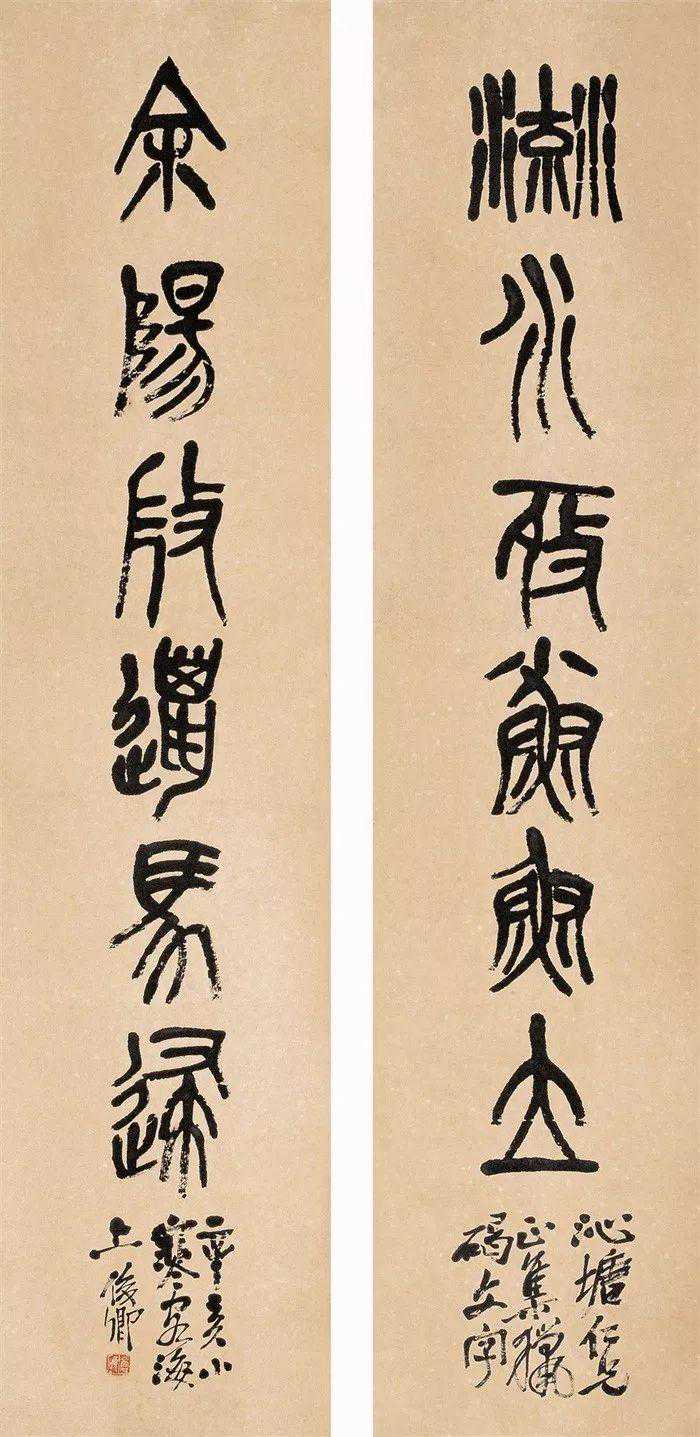 水魚立
沁塘仁兄
正集獵
碣文字
余陽邁馬歸
辛亥小
寒客海
上俊卿